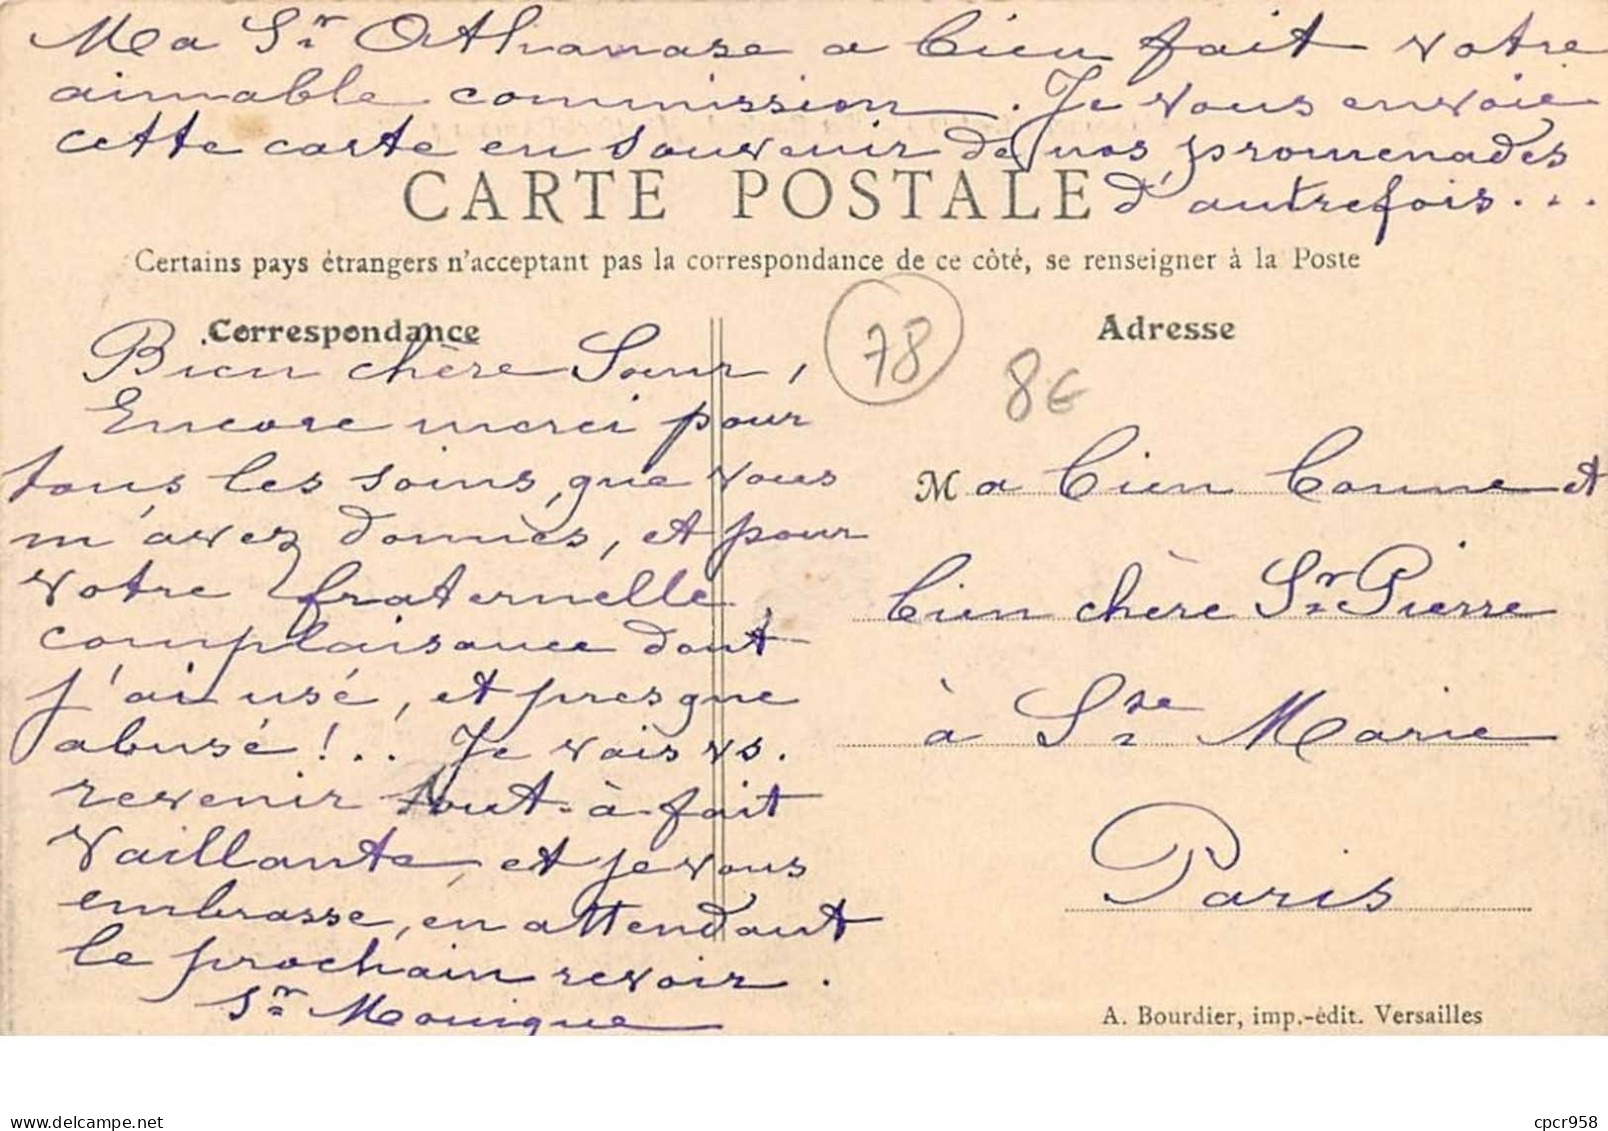 Ma Sr Athanase a bien fait votre
aimable commission. Je vous envoie
cette carte en souvenir de nos promenades
d'autrefois...
CARTE POSTALE
Certains pays étrangers n'acceptent pas la correspondance de ce côté, se renseigner à la Poste
Correspondance
Bien chère Sœur,
Encore merci pour
tous les soins, que vous
m'avez donnés, et pour
votre fraternelle
complaisance dont
j'ai usé, et presque
abusé!.. Je vais vs.
revenir tout-à-fait
vaillante, et je vous
embrasse, en attendant
le prochain revoir.
Sr Monique
78
8€
Adresse
Ma bien bonne et
bien chère Sr Pierre
à Ste Marie
Paris
A. Bourdier, imp.-édit. Versailles
delcampe.net
cpcr958